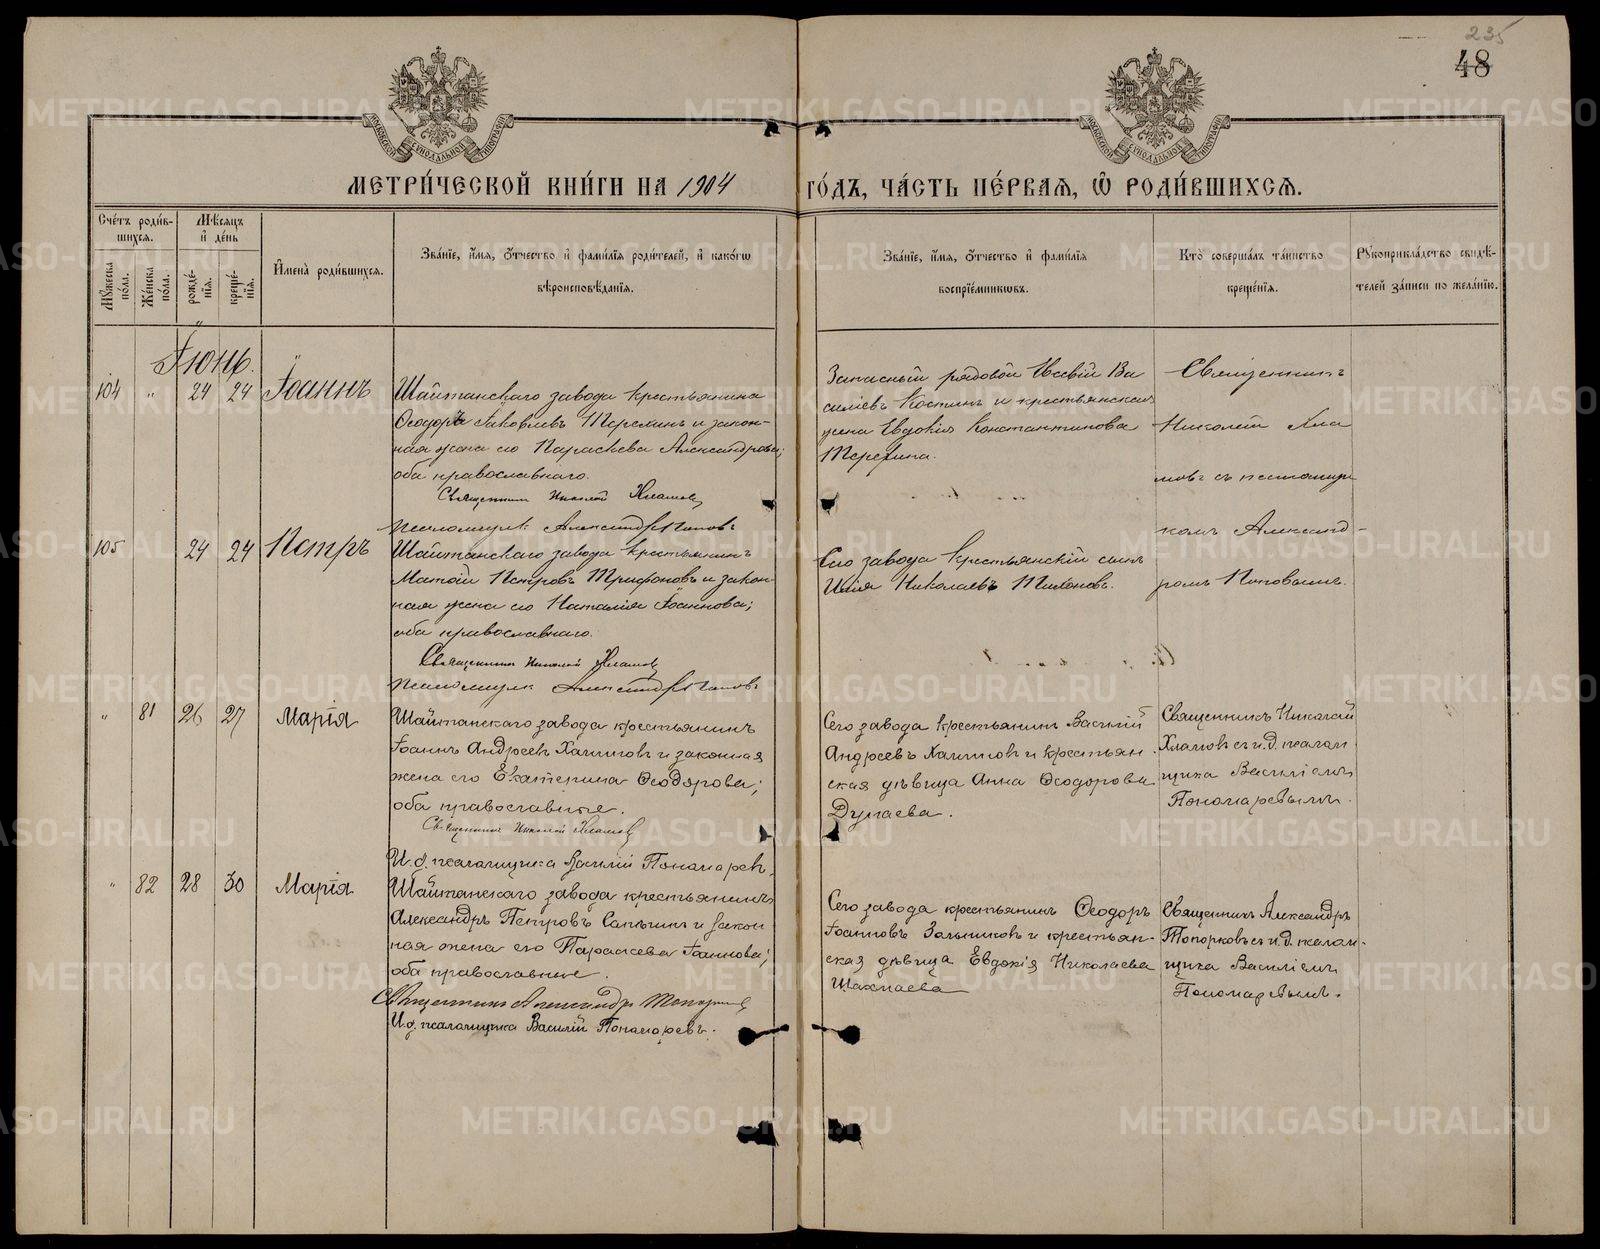 235
48
МОСКОВСКОЙ СѴНОДАЛЬНОЙ ТИПОГРАФІИ
МОСКОВСКОЙ СѴНОДАЛЬНОЙ ТИПОГРАФІИ
МЕТРИ́ЧЕСКОЙ КНИ́ГИ НА 1904 ГО́ДЪ, ЧА́СТЬ ПЕ́РВАЯ, Ѡ РОДИ́ВШИХСѦ.
Сче́тъ роди́в-
шихсѧ.
Мꙋ́жеска по́ла.
Же́нска по́ла.
Мѣ́сѧцъ
и҆ де́нь
рожде́-
нїѧ.
креще́-
нїѧ.
И҆мена̀ роди́вшихсѧ.
Зва́нїе, и҆́мѧ, ѻ҆́тчество и҆ фамі́лїѧ роди́телей, и҆ како́гѡ
вѣроисповѣ́данїѧ.
Зва́нїе, и҆́мѧ, ѻ҆́тчество и҆ фамі́лїѧ
воспрїе́мникѡвъ.
Кто̀ соверша́лъ та́инство
креще́нїѧ.
Рꙋкоприкла́дство свидѣ́-
телей за́писи по жела́нїю.
Іюнь.
104 " 24 24 Іоаннъ
Шайтанскаго завода крестьянинъ
Ѳеодоръ Іаковлевъ и закон-
ная жена его Параскева Александрова;
оба православнаго.
Священникъ Николай Хламовъ
Псаломщикъ Александръ Поповъ
Запасный рядовой Ва
силіевъ Костинъ и крестьянская
жена Евдокія Константинова
Священникъ
Николай Хла
мовъ съ псаломщи
комъ Александ-
ромъ Поповымъ.
105 24 24 Петръ
Шайтанскаго завода крестьянинъ
Матѳій Петровъ Трифоновъ и закон-
ная жена его Наталія Іоаннова;
оба православнаго.
Священникъ Николай Хламовъ
Псаломщикъ Александръ Поповъ
Сего завода крестьянскій сынъ
Илія Николаевъ Тихоновъ.
" 81 26 27 Марія
Шайтанскаго завода крестьянинъ
Іоаннъ Андреевъ Халтиновъ и законная
жена его Екатерина Ѳеодорова;
оба православные.
Священникъ Николай Хламовъ
И.д. псаломщика Василій Пономаревъ.
Сего завода крестьянинъ Василій
Андреевъ Халтиновъ и крестьян-
ская дѣвица Анна Ѳеодорова
Дунаева.
Священникъ Николай
Хламовъ съ и.д. псалом
щика Василіемъ
Пономаревымъ.
" 82 28 30 Марія
Шайтанскаго завода крестьянинъ
Александръ Петровъ и закон
ная жена его Параскева Іоаннова;
оба православные.
Священникъ Александръ Топорковъ
И.д. псаломщика Василій Пономаревъ.
Сего завода крестьянинъ Ѳеодоръ
Іоанновъ Зольниковъ и крестьян-
ская дѣвица Евдокія Николаева
Шахмаева
Священникъ Александръ
Топорковъ съ и.д. псалом-
щика Василіемъ
Пономаревымъ.
METRIKI.GASO-URAL.RU